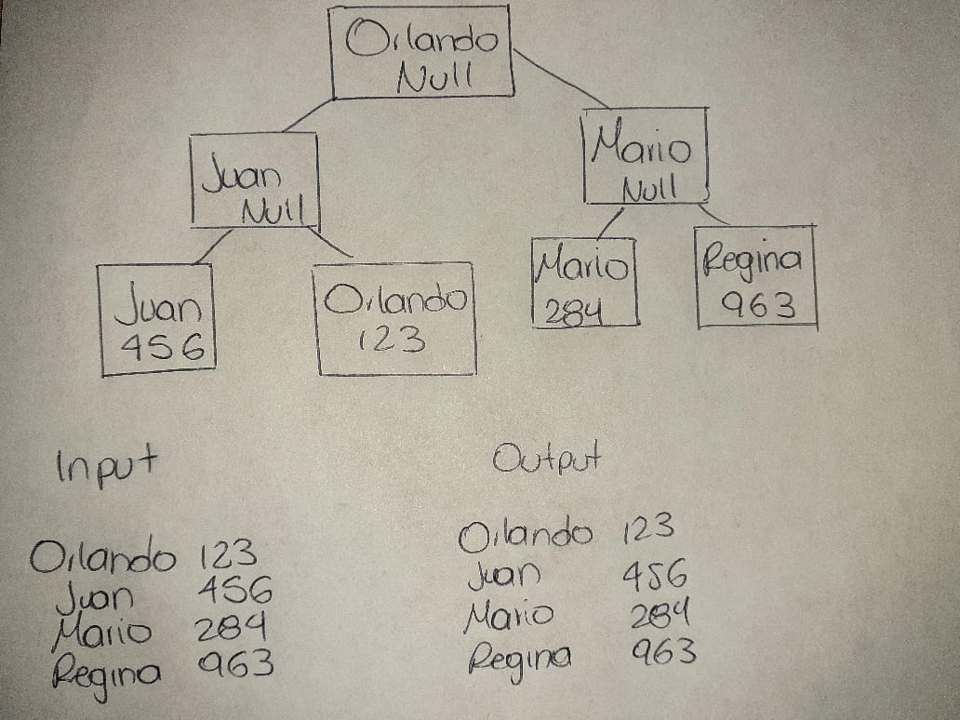 Orlando
Null
Juan
Null
Mario
Null
Juan
456
Orlando
123
Mario
284
Regina
963
Input
Output
Orlando 123
Juan 456
Mario 284
Regina 963
Orlando 123
Juan 456
Mario 284
Regina 963